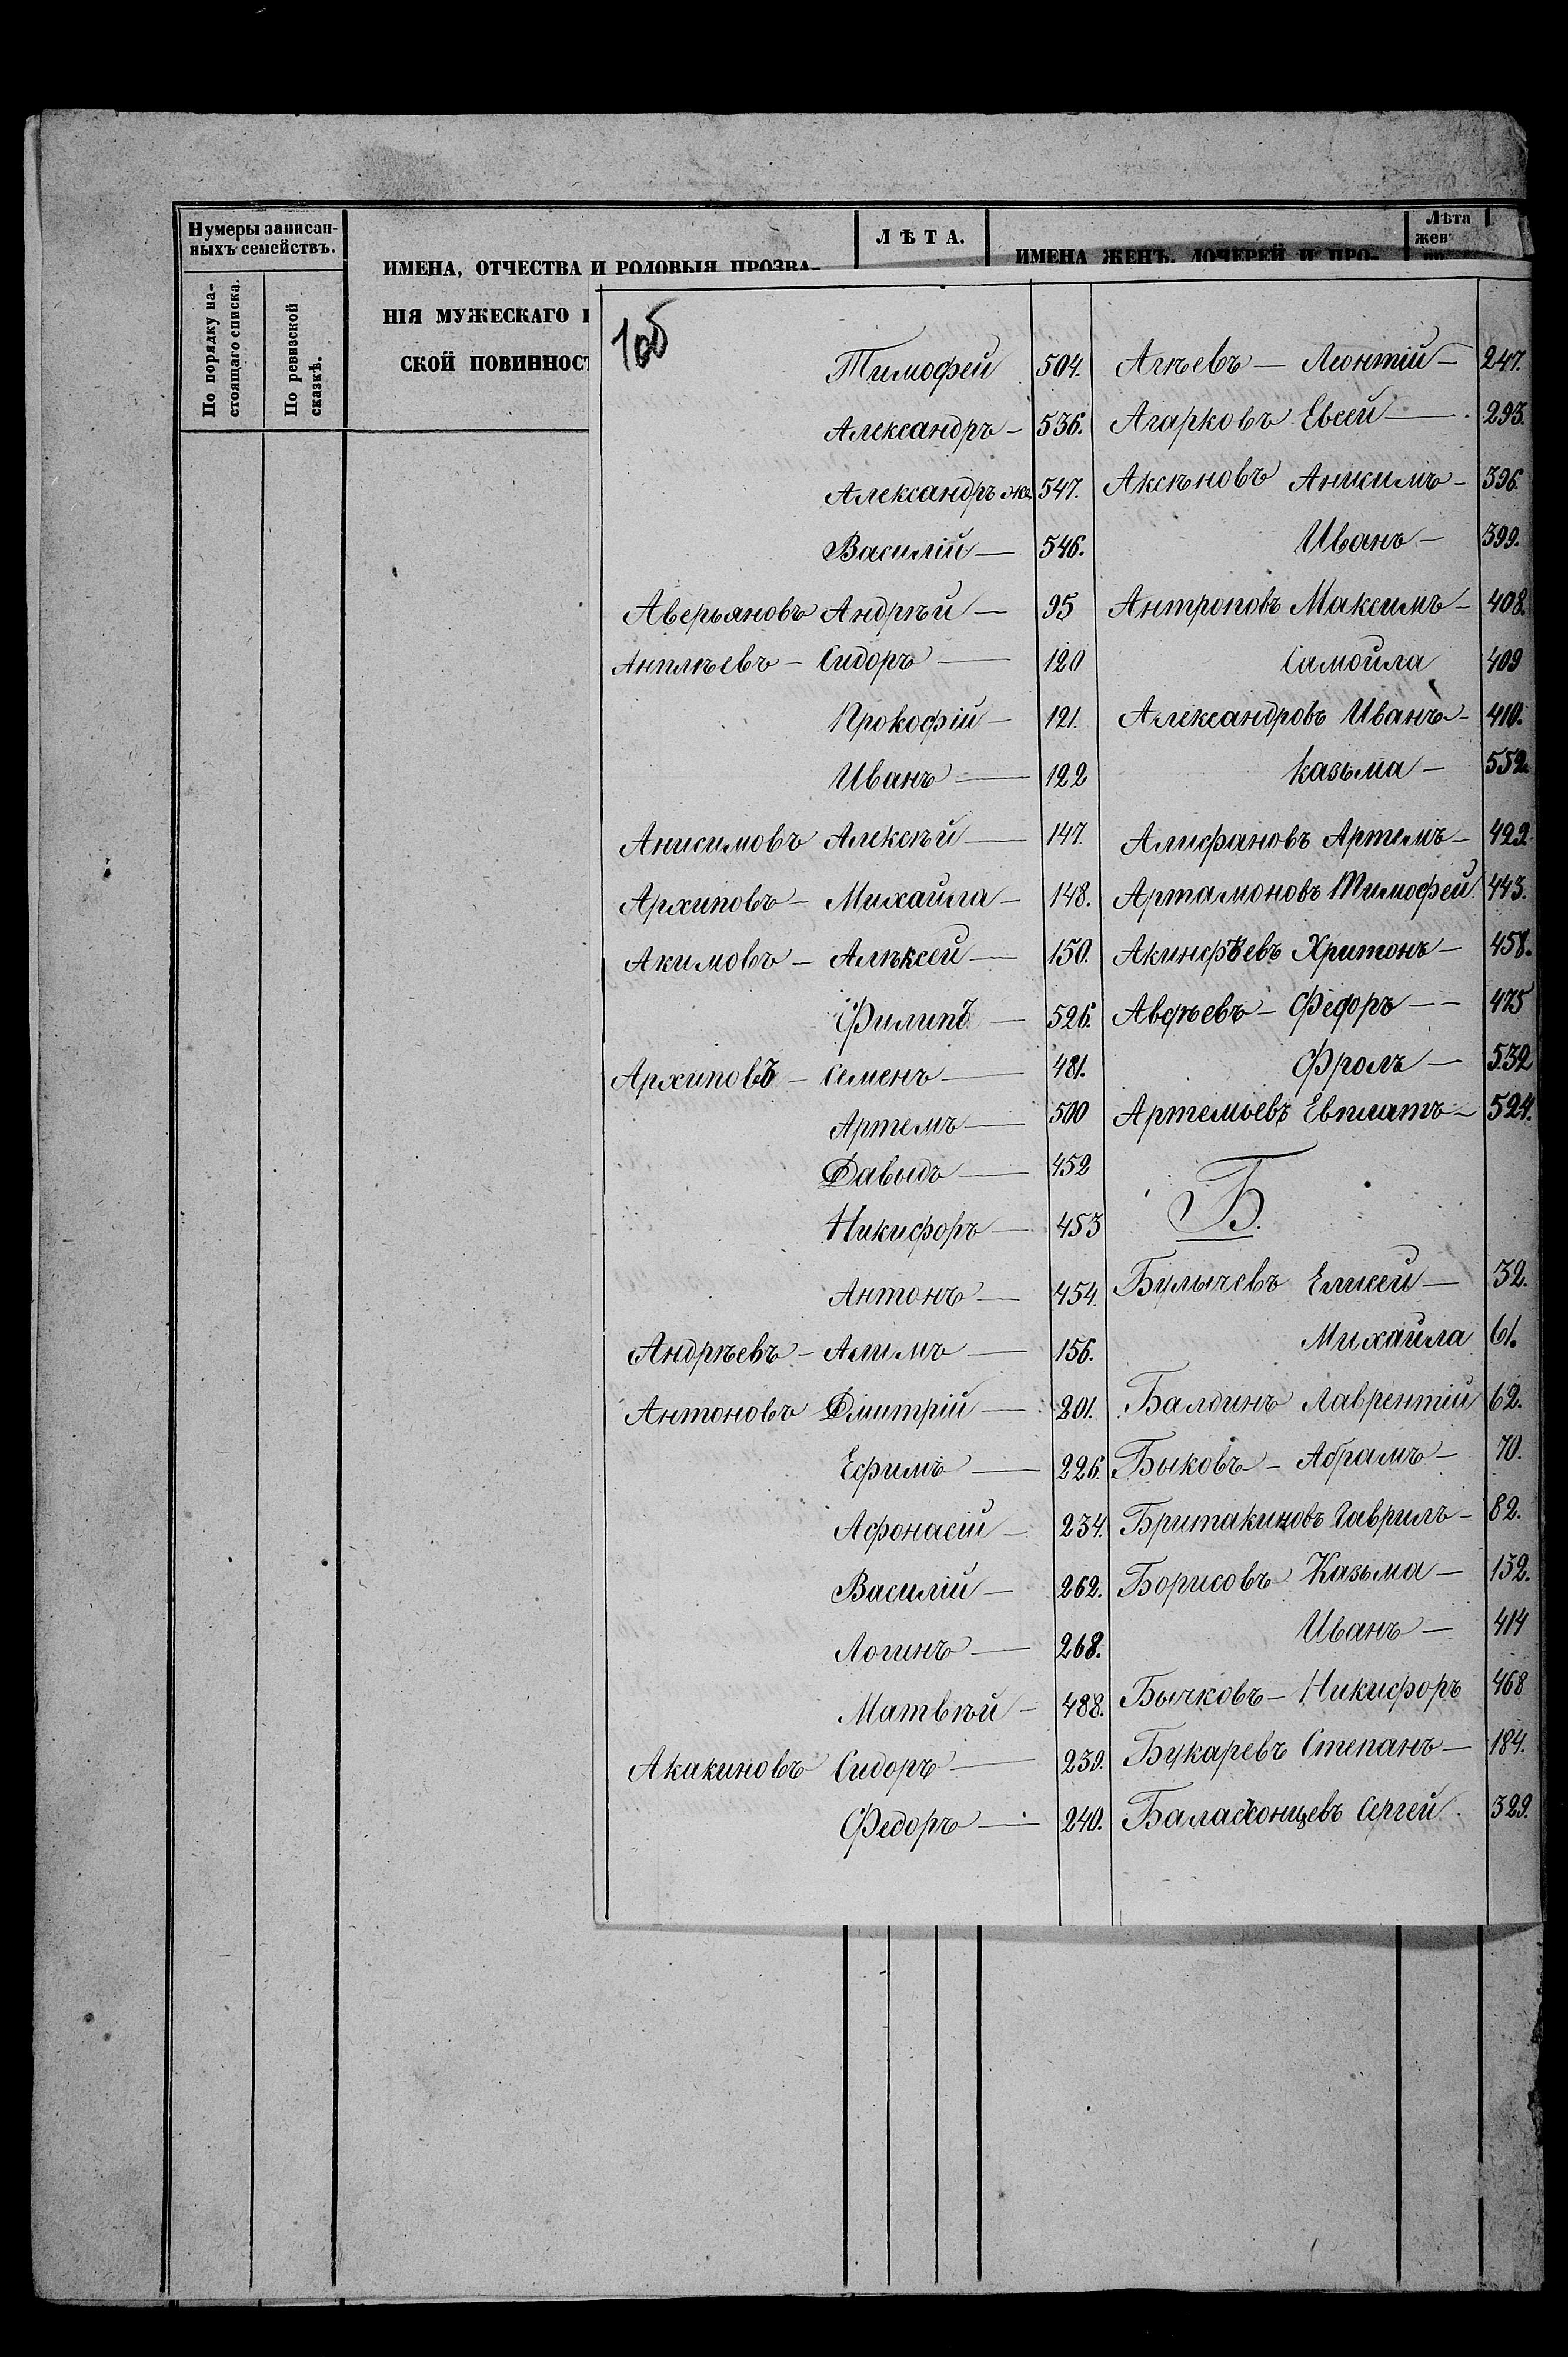 Нумеры записан-
ныхъ семействъ.
По порядку на-
стоящаго списка.
По ревизской
сказкѣ.
ИМЕНА, ОТЧЕСТВА И РОДОВЫЯ ПРОЗВА-
НІЯ МУЖЕСКАГО
СКОЙ ПОВИННОСТ
ЛѢТА.
ИМЕНА ЖЕНЪ, ДОЧЕРЕЙ И ПРО-
Лѣта
жен
1об
Тимофей 504.
Александръ - 536.
Александръ же 547.
Василій — 546.
Аверьяновъ Андрѣй — 95
Анплѣевъ - Сидоръ — 120
Прокофій — 121.
Иванъ — 122
Анисимовъ Алексѣй — 147.
Архиповъ - Михайла - 148.
Акимовъ - Алѣксей — 150.
Филипъ — 526.
Архиповъ - Семенъ — 481.
Артемъ — 500
Давыдъ — 452
Никифоръ — 453
Антонъ — 454.
Андрѣевъ - Алимъ — 156.
Антоновъ Дмитрій — 201.
Ефимъ — 226.
Афонасій — 234.
Василій — 262.
Логинъ — 268.
Матвѣй — 488.
Акакиновъ Сидоръ — 239.
Федоръ — 240.
Агѣевъ — Леонтій — 247.
Агарковъ Евсей — 293.
Аксѣновъ Анисимъ - 396.
Иванъ — 399.
Антроповъ Максимъ - 408.
Самойла 409
Александровъ Иванъ - 410.
Казьма — 552.
Алифановъ Артемъ - 422.
Артамоновъ Тимофей 443.
Акинфѣевъ Хритонъ — 458.
Авдѣевъ - Федоръ — 475
Фролъ — 532
Артемьевъ Евплатъ - 524.
Б.
Булычевъ Елисей — 32.
Михайла 61.
Балдинъ Лаврентій 62.
Быковъ - Абрамъ — 70.
Бритакиновъ Гаврилъ - 82.
Борисовъ Казьма — 152.
Иванъ — 414
Бычковъ - Никифоръ 468
Букаревъ Степанъ — 184.
Баласхонцевъ Сергей 329.